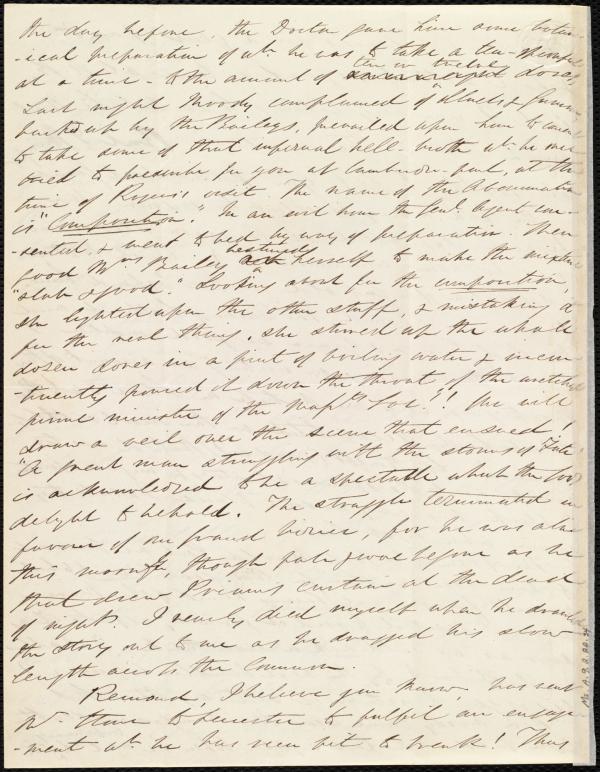 the day before, the Doctor gave him some botan-
-ical preparation of wh. he was to take a tea-spoonful
at a time - to the amount of ten or twelve doses.
Last night Moody complained of &
backed up by the Baileys, prevailed upon him to consent
to take some of that infernal hell-broth wh. he
tried to prescribe for you at Cambridge-port, at the
time of Rogers's visit. The name of the Abomination
is "Composition." In an evil hour the Genl. Agent con-
-sented, & went to bed by way of preparation. Then
good Mrs Bailey bestirred herself to make the mixture
"slab & good." Looking about for the composition,
she lighted upon the other stuff, & mistaking it
for the real thing, she stirred up the whole
dozen doses in a pint of boiling water & incon-
-tinently poured it down the throat of the wretched
prime minister of the Massts Soc.!! We will
draw a veil over the scene that ensued!
"A great man struggling with the storms of Fate"
is acknowledged to be a spectacle which the Gods
delight to behold. The struggle terminated in
favour of our friend however, for he was alive
this morng, though pale & woe begone as he
that drew Priam's curtain at the dead
of night. I nearly died myself when he drawled
the story out to me as he dragged his slow
length across the Common.
Remond, I believe you know, has sent
Wm. to Leicester to fulfil an engage-
-ment wh. he has seen fit to break! Thus
Ms. A.9.2.